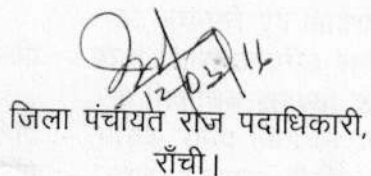 12.03.16
जिला पंचायत राज पदाधिकारी,
राँची।